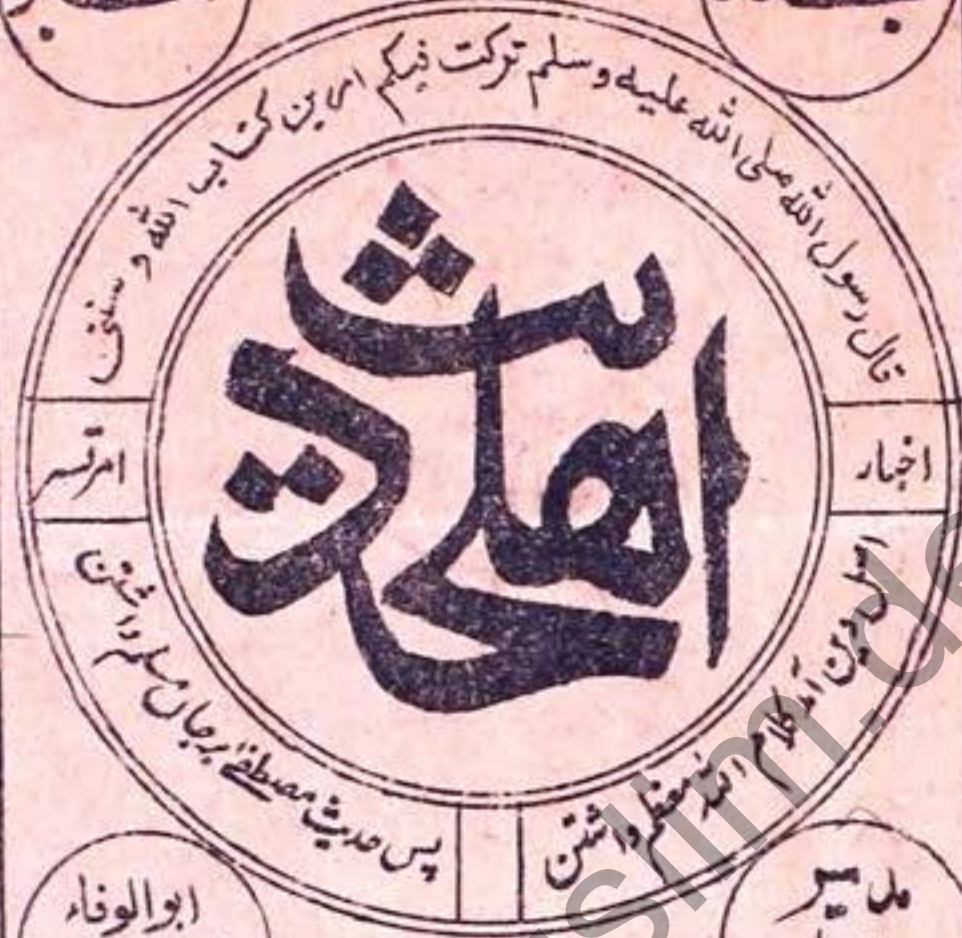 قال رسول الله صلی الله علیه و سلم ترکت فیکم امرین کتاب الله و سنتی
اخبار
اهلحدیث
امرتسر
اصل دین آمد کلام الله معظم داشتن
پس حدیث مصطفےٰ بر جاں مسلم داشتن
مدیر
ابوالوفاء